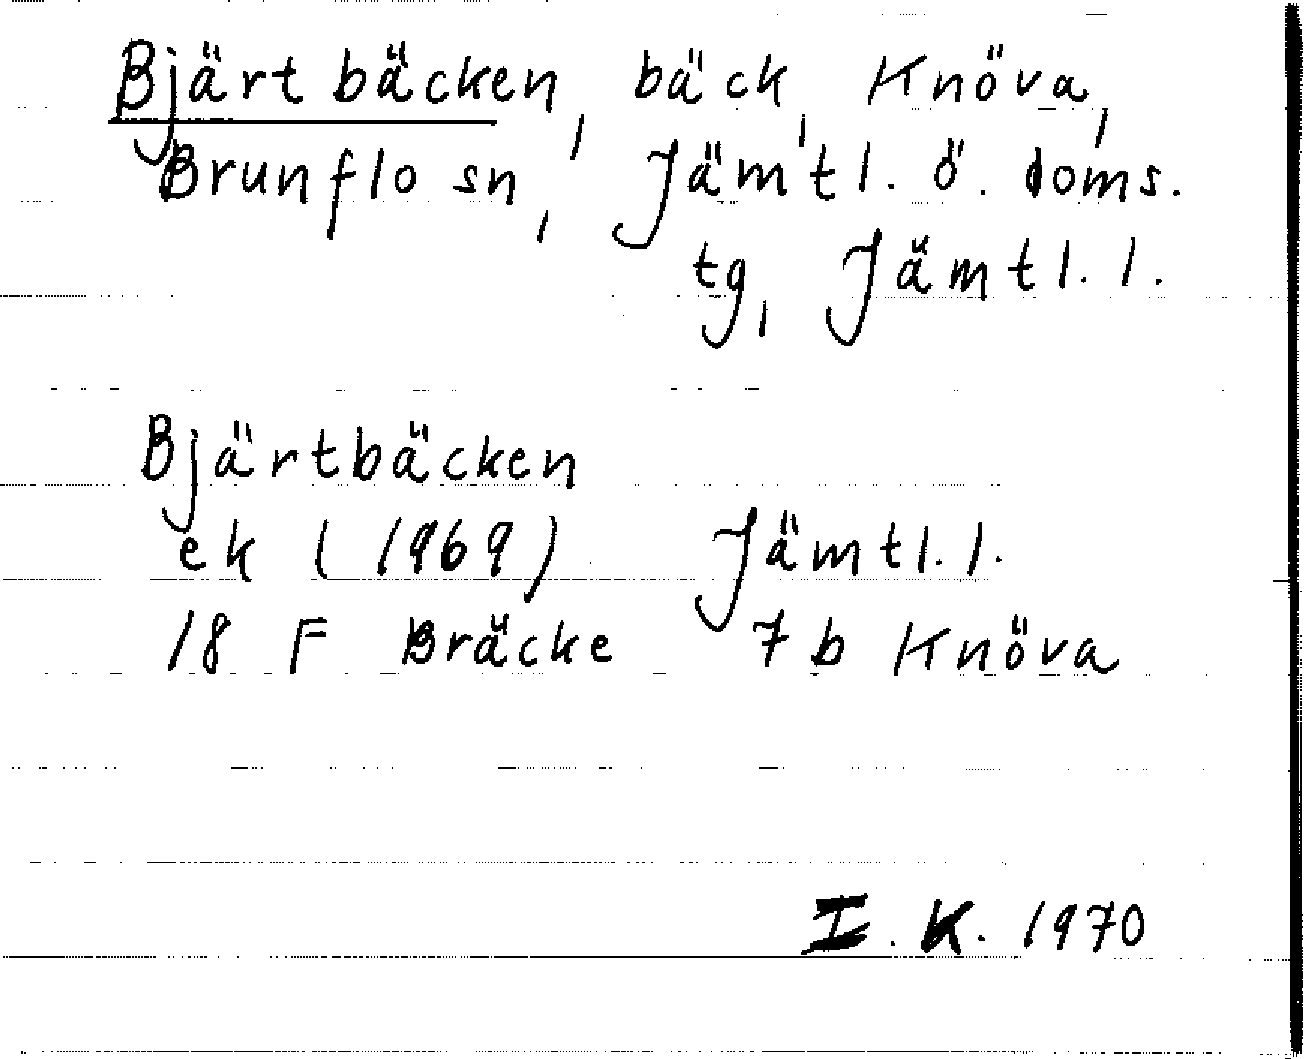 Bjärtbäcken, bäck, Knöva,
Brunflo sn, Jämtl. ö. doms.
tg, Jämtl. l.
Bjärtbäcken
ek (1969) Jämtl. l.
18 F Bräcke 7 b Knöva
I. K. 1970